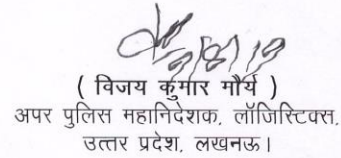 ( विजय कुमार मौर्य )
अपर पुलिस महानिदेशक, लॉजिस्टिक्स,
उत्तर प्रदेश, लखनऊ।